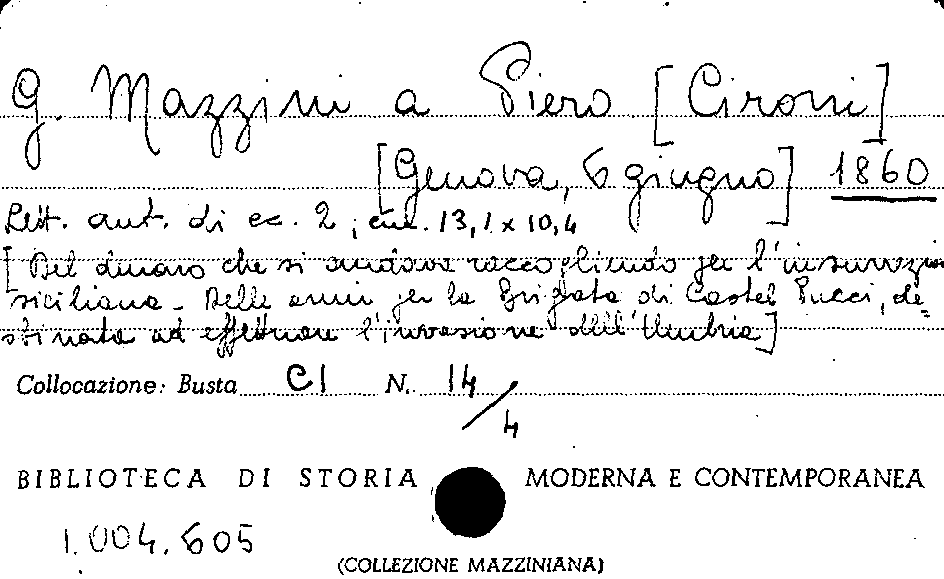 G. Mazzini a Piero [Cironi]
[Genova, 6 giugno] 1860
Lett. aut. di cc. 2, cm. 13,1 x 10,4
[Del denaro che si andava raccogliendo per l'insurrezione
siciliana - Delle armi per la Brigata di Castel Pucci, de=
stinata ad effettuare l'invasione dell'Umbria]
Collocazione: Busta CI N. 14/4
BIBLIOTECA DI STORIA MODERNA E CONTEMPORANEA
1.004.605
(COLLEZIONE MAZZINIANA)